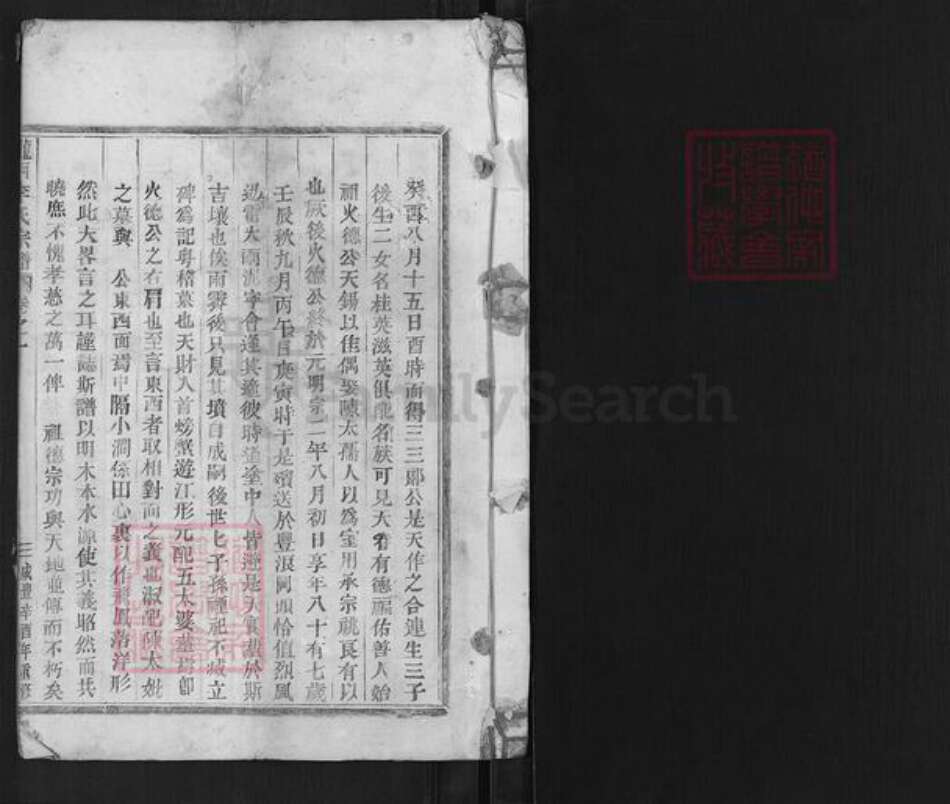 癸酉八月十五日酉時而得三三郎公是天作之合連生三子
後生二女名桂英滋英俱配名族可見大有德福佑善人始
祖火德公天錫以佳偶娶陳太孺人以為室用承宗祧良有以
也厥後火德公終於元明宗二年八月初日享年八十有七歲
壬辰秋九月丙午日庚寅時于是殯送於豐浪岡頭恰值烈風
迅雷大雨滂寧合遂其適彼時道塗中人皆避是天實葬於斯
吉壤也俟雨霽後只見其墳自成嗣後世七子孫禋祀不忒立
碑為記粵稽葉也天財人首螃蟹遊江形元配五太婆葬即
火德公之右肩也至言東西者取相對面之義也淑配陳太妣
之墓與 公東西面焉中隔小澗係田心裏以作飛鳳落洋形
然此大畧言之耳謹誌斯譜以明木本水源使其義昭然而共
曉庶不愧孝慈之萬一俾 祖德宗功與天地並傳而不朽矣
隴西李氏宗譜 卷之一 三 咸豐辛酉年重修
FamilySearch